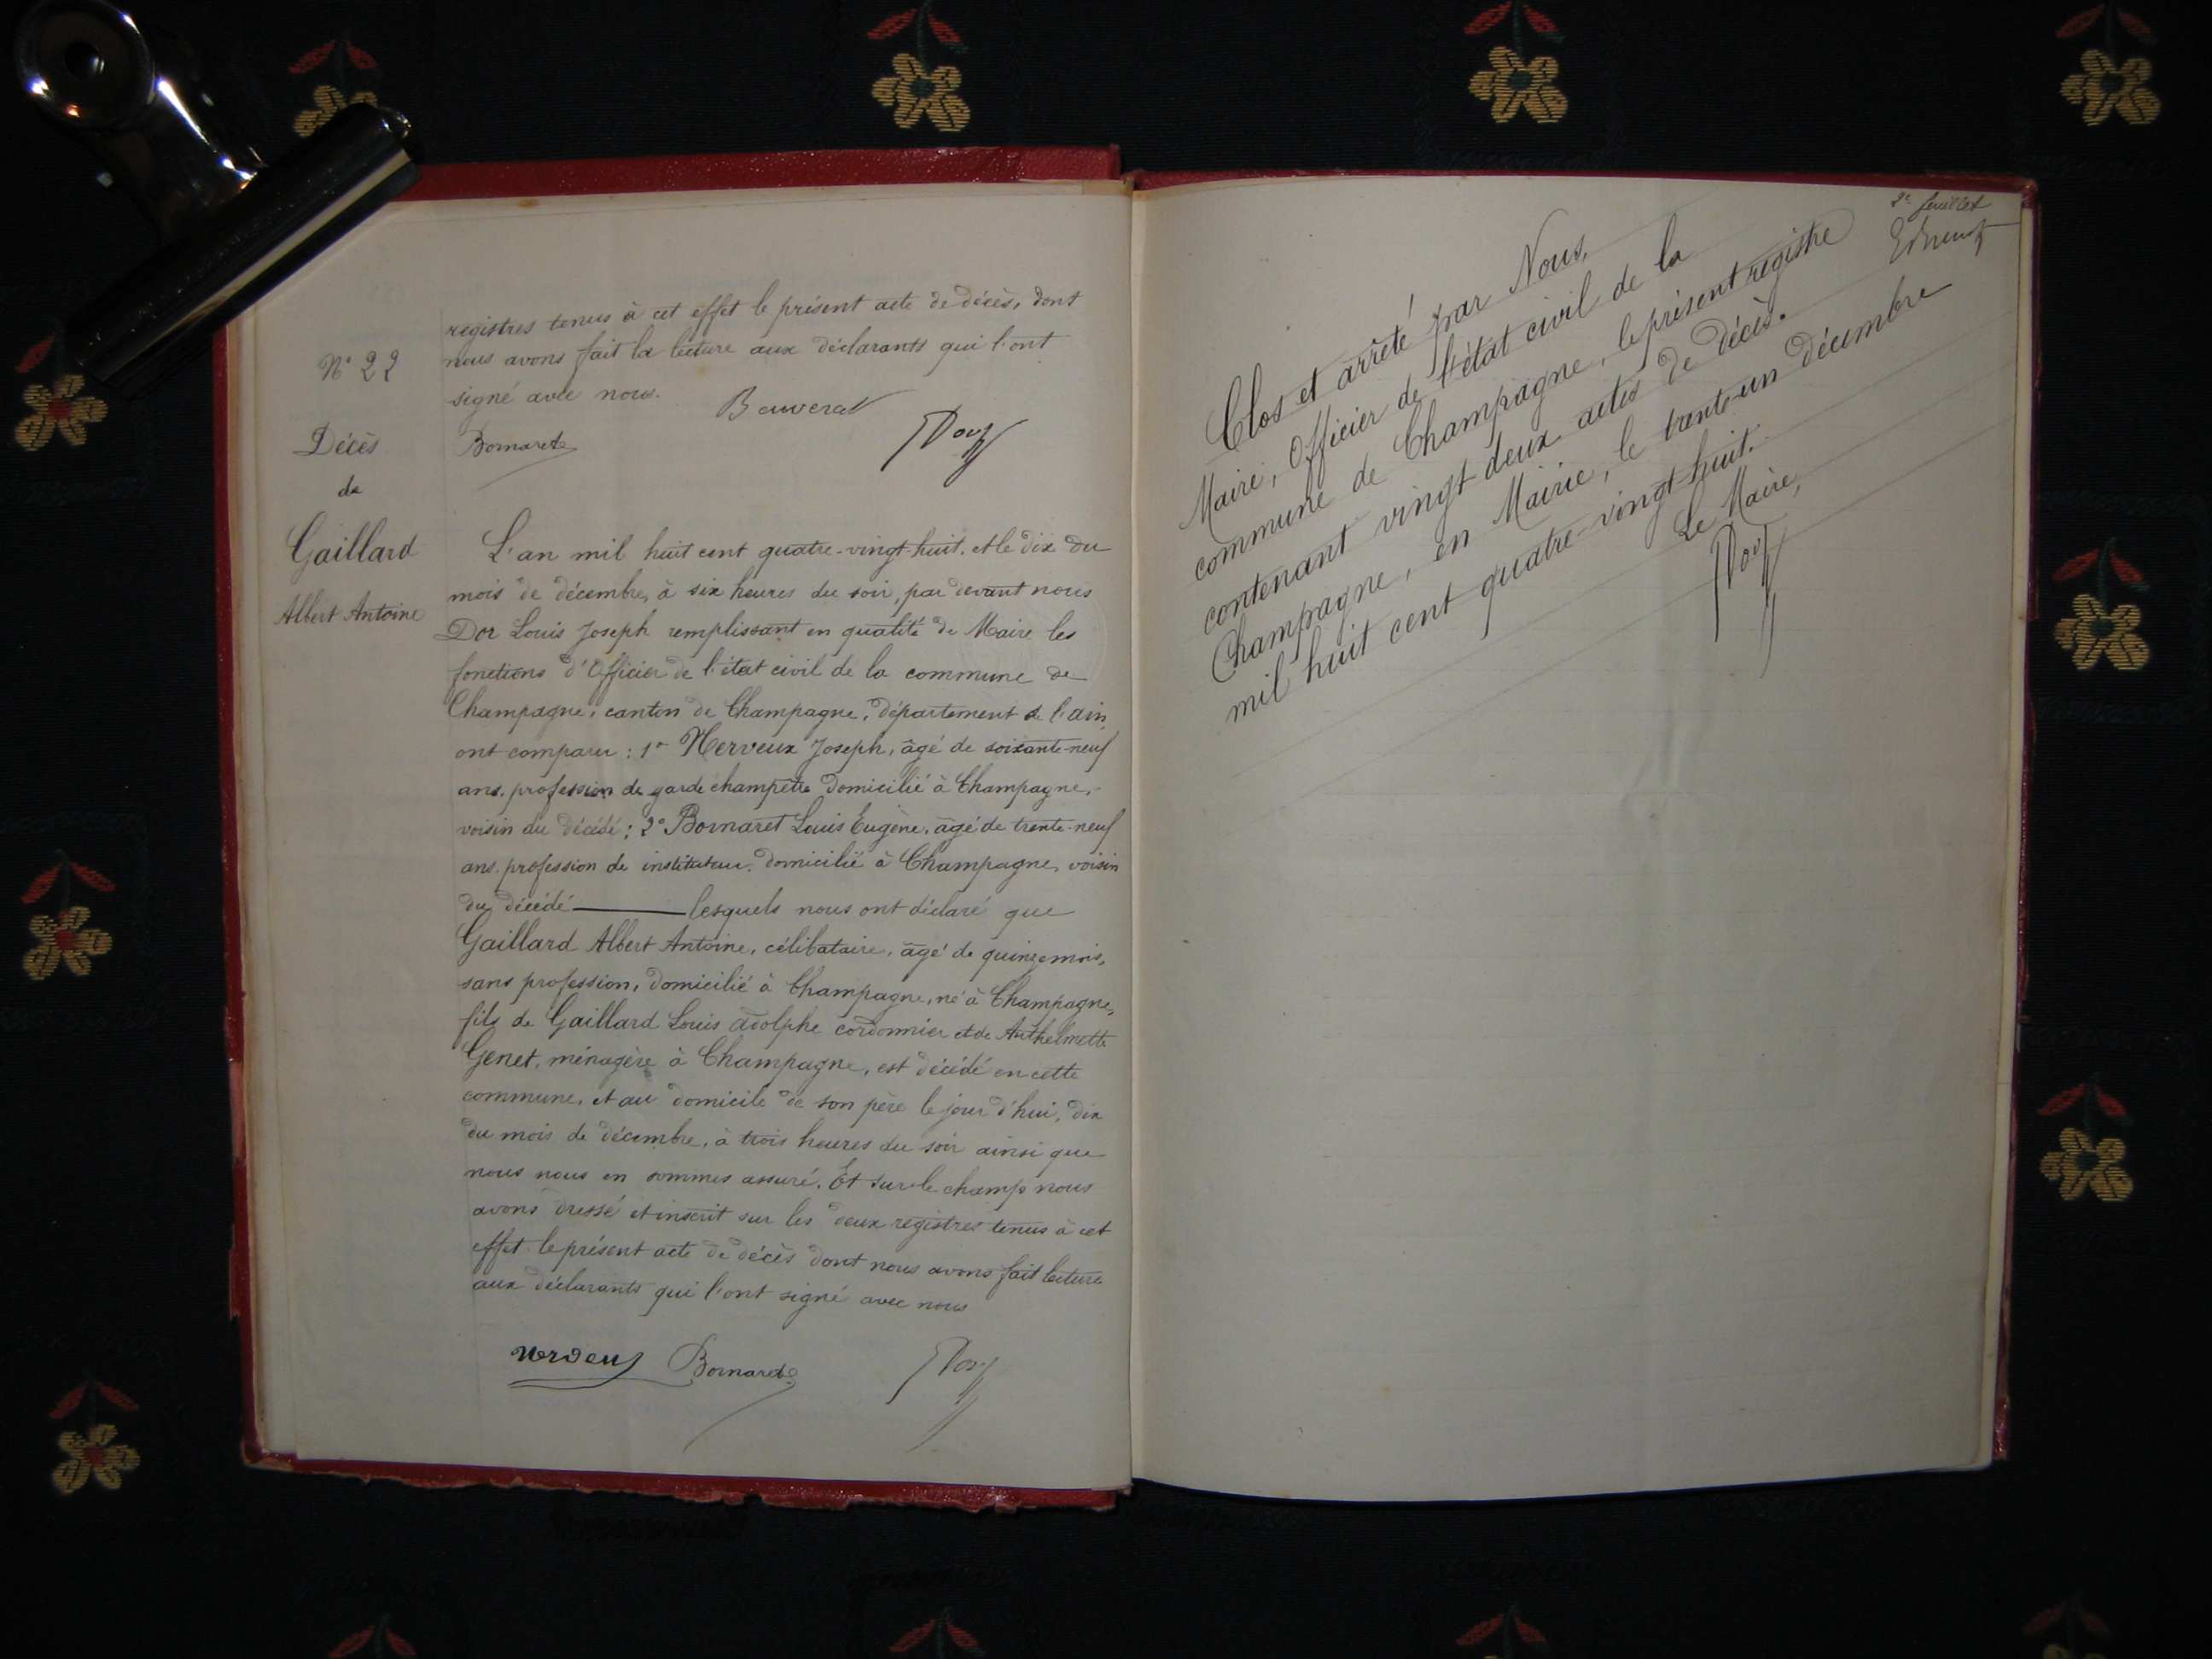 registres tenus à cet effet le présent acte de décès, dont
nous avons fait la lecture aux déclarants qui l'ont
signé avec nous.
Bornaret
Dor
N° 22
Décès
de
Gaillard
Albert Antoine
L'an mil huit cent quatre-vingt-huit, et le dix du
mois de décembre, à six heures du soir, par devant nous
Dor Louis Joseph remplissant en qualité de Maire les
fonctions d'Officier de l'état civil de la commune de
Champagne, canton de Champagne, département de l'ain
ont comparu : 1° Nerveux Joseph, âgé de soixante-neuf
ans, profession de garde champêtre domicilié à Champagne,
voisin du décédé ; 2° Bornaret Louis Eugène, âgé de trente-neuf
ans, profession de instituteur, domicilié à Champagne, voisin
du décédé lesquels nous ont déclaré que
Gaillard Albert Antoine, célibataire, âgé de quinze mois,
sans profession, domicilié à Champagne, né à Champagne,
fils de Gaillard Louis adolphe cordonnier et de Anthelmette
Genet, ménagère à Champagne, est décédé en cette
commune, et au domicile de son père le jour d'hui, dix
du mois de décembre, à trois heures du soir ainsi que
nous nous en sommes assuré. Et sur le champ nous
avons dressé et inscrit sur les deux registres tenus à cet
effet le présent acte de décès dont nous avons fait lecture
aux déclarants qui l'ont signé avec nous
Bornaret
Dor
2e feuillet
Clos et arrêté par Nous,
Maire, Officier de l'état civil de la
commune de Champagne, le présent registre
contenant vingt deux actes de décès.
Champagne, en Mairie, le trente-un décembre
mil huit cent quatre-vingt huit.
Le Maire,
Dor